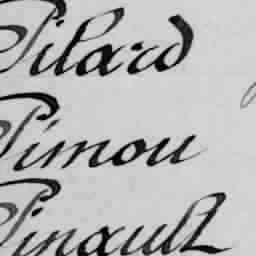 Pilard
Pimou
Pinault